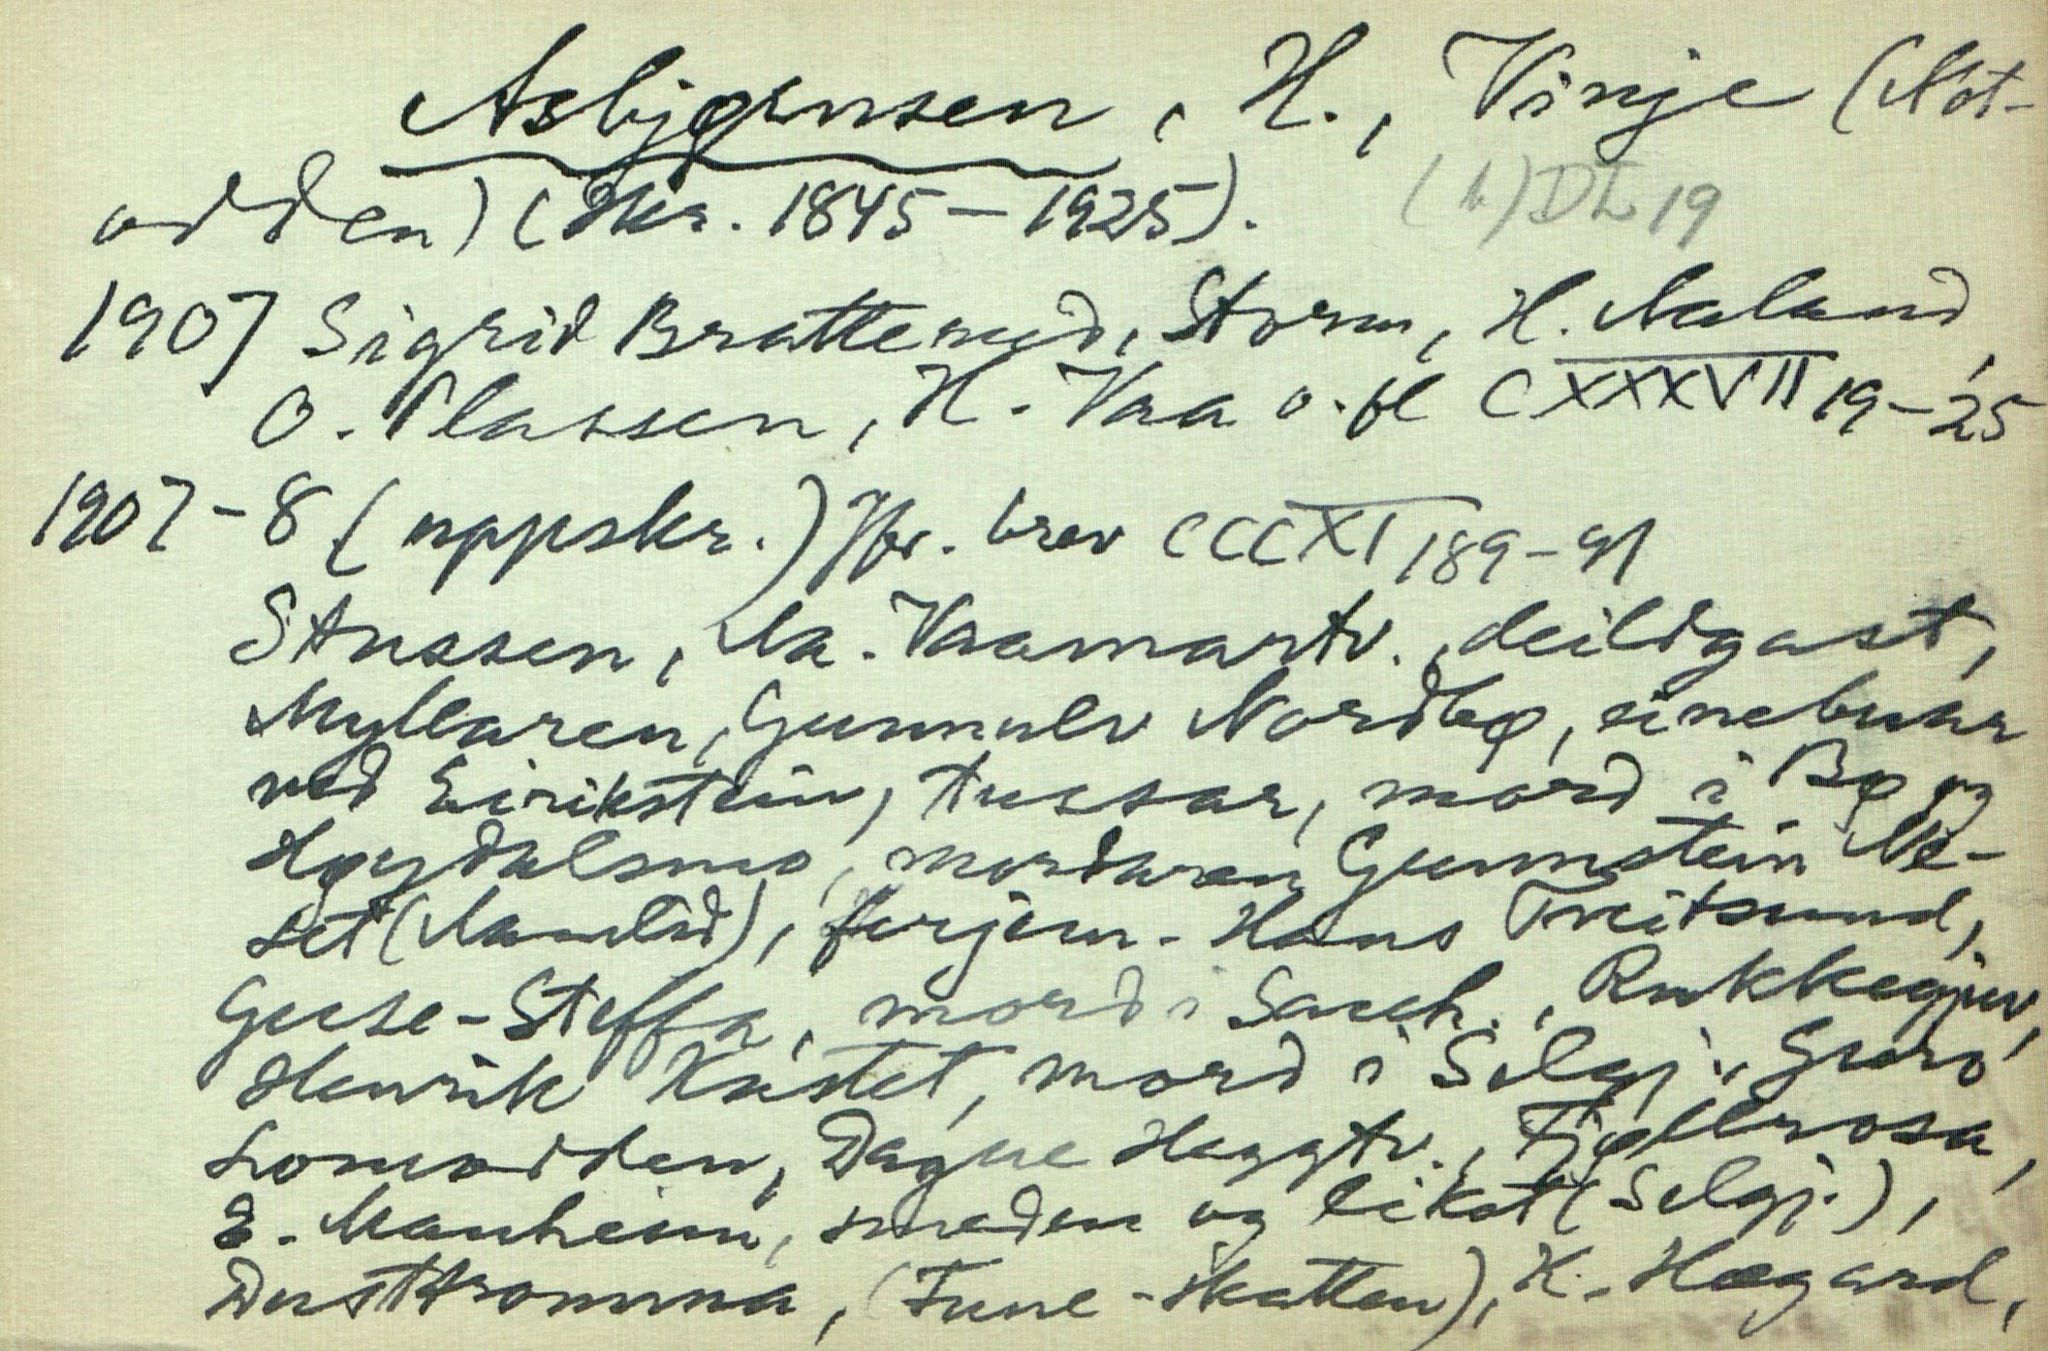 Asbjørnsen, H., Vinje (Not-
odden) (Skr. 1845-1925).
(b) DL 19
1907 Sigrid Bratterud, Storm, H. Aaland,
O. Olassen, H. Vaa o. fl CXXXVII 19-25
1907-8 (uppskr.) Jfr. brev CCCXI 189-91
Stussen, Aa. Vaamartv., deildgast,
Myllaren, Gunnulv Nordbø, einebuar
ved Eirikstein, tussar, mord i Bø og
Høydalsmo, mordaren Gunnstein
set (Aamlid), ferjem. Hans Tveitsund,
Guse-Steffa, mord i Sauh., Rukkegjuv,
Henrik Kastet, mord i Selgj., Guro
Lomodden, Dagne Heggtv., Fjellrosa,
E. Manheim, smeden og likat (Selgj.),
Dusttromma, (Fune-skatten), K. Hægard,